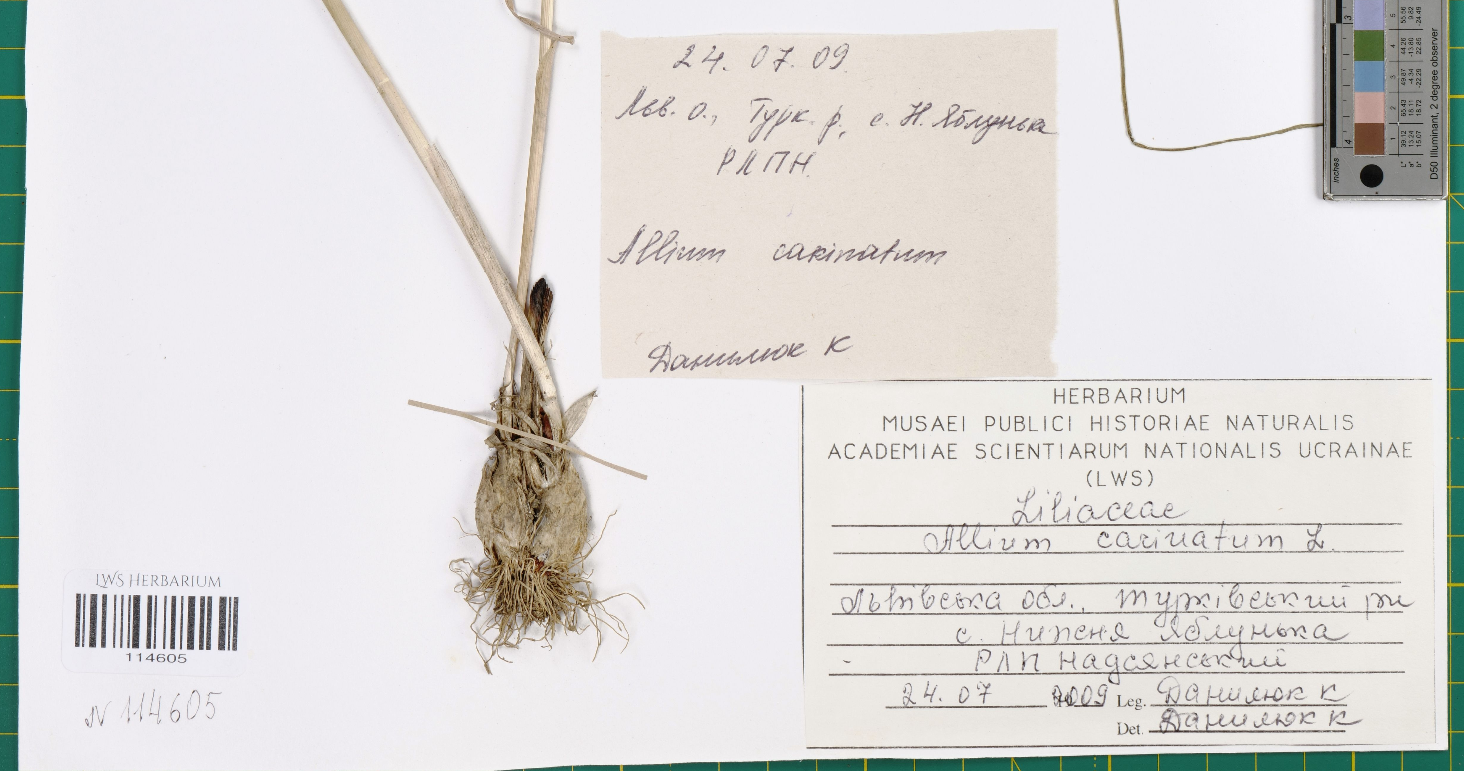 24. 07. 09.
Льв. о., Турк. р., с. Н. Яблунька
РЛПН.
Allium carinatum
Данилюк К
HERBARIUM
MUSAEI PUBLICI HISTORIAE NATURALIS
ACADEMIAE SCIENTIARUM NATIONALIS UCRAINAE
(LWS)
Liliaceae
Allium carinatum L.
Львівська обл., Турківський рн
с. Нижня Яблунька
- РЛП Надсянський
24. 07 2009 Leg. Данилюк К
Det. Данилюк К
LWS HERBARIUM
114605
N 114605
inches
3
4
5
4
3
2
1
55.56 9.82 -24.49
44.26 -13.80 22.85
49.87 -4.34 -22.29
65.43 18.11 18.72
39.12 13.24 15.07
L* a* b*
D50 Illuminant, 2 degree observer